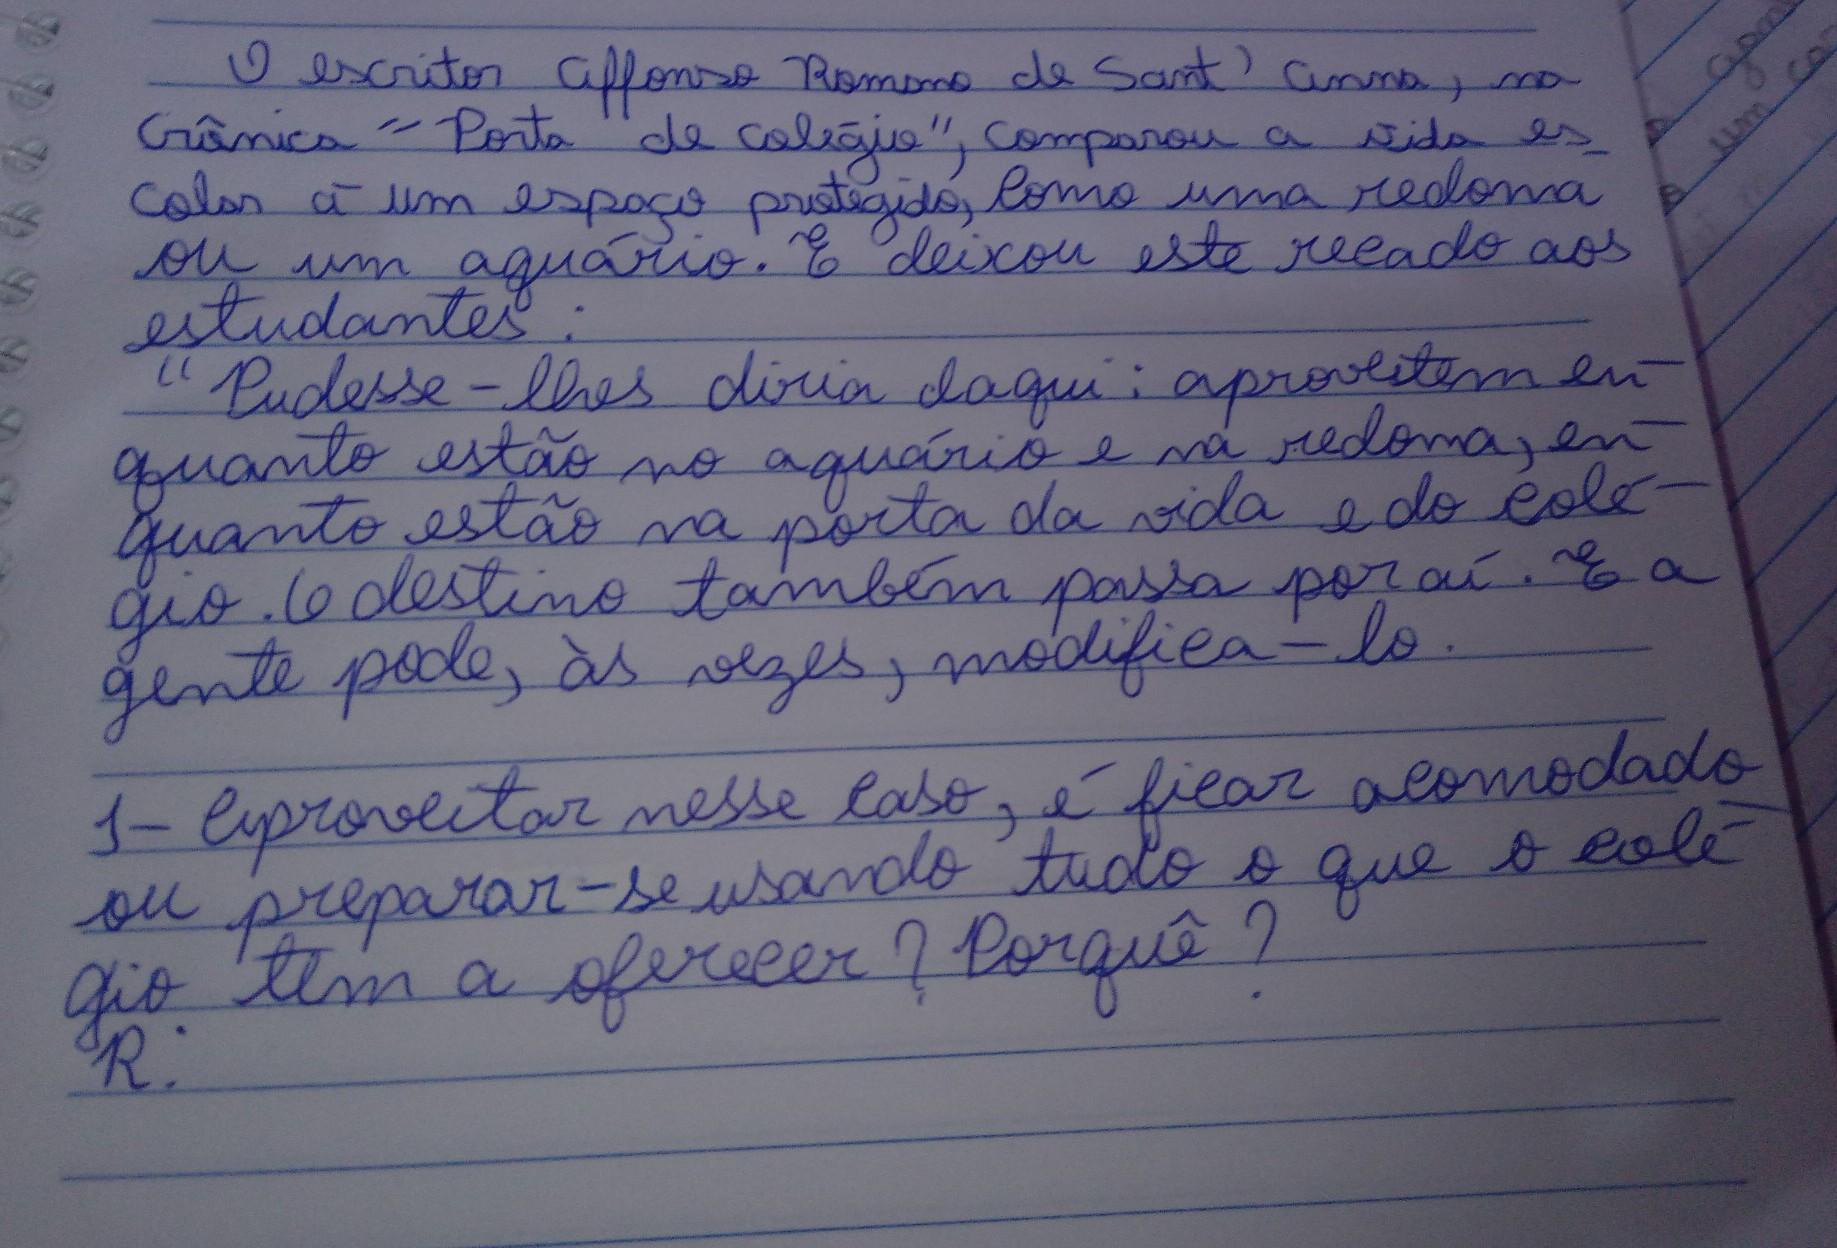 O escritor Affonso Romano de Sant' Anna, na
Crônica "Porta de colégio", comparou a vida es-
colar a um espaço protegido, como uma redoma
ou um aquário. E deixou este recado aos
estudantes:
"Pudesse-lhes diria daqui: aproveitem en-
quanto estão no aquário e na redoma, en-
quanto estão na porta da vida e do colé-
gio. O destino também passa por aí. E a
gente pode, às vezes, modifica-lo.
1- Aproveitar nesse caso, é ficar acomodado
ou preparar-se usando tudo o que o colé-
gio tem a oferecer? Porquê?
R:
um